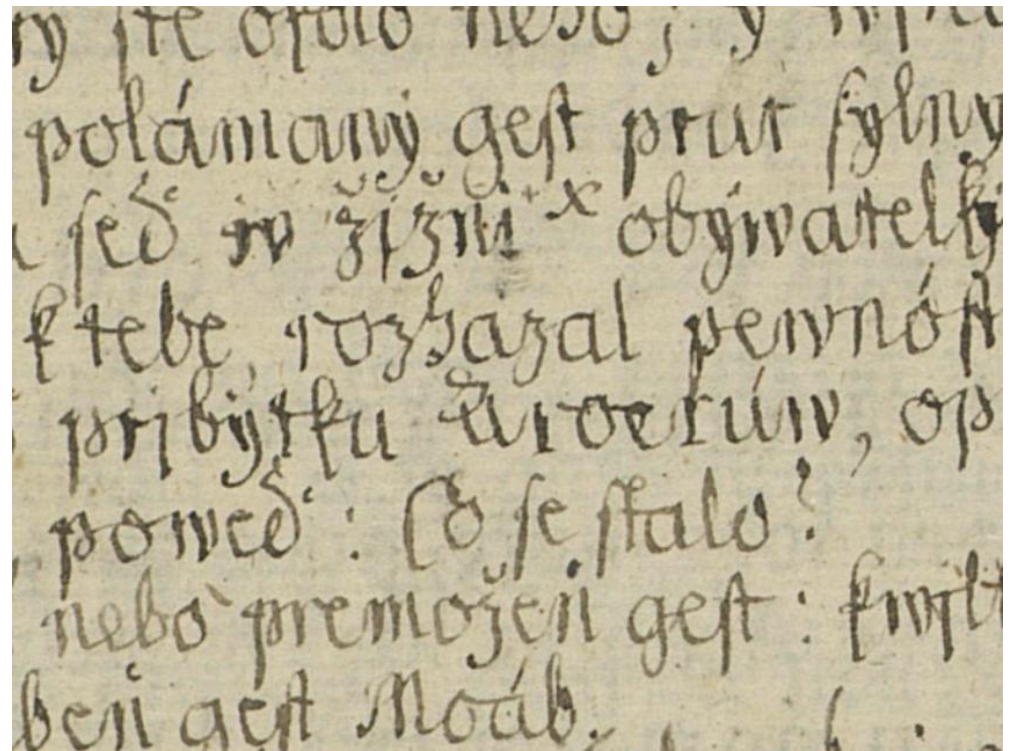 ste okolo neho; y
polámaný gest prut sylný
seď w žjžni x obýwatelký
k tebe, rozházal pewnóst
pribýtku Aroerúw, op
poweď: Čo se stalo?
nebo premožeň gest: kwjlt
beň gest Moáb.